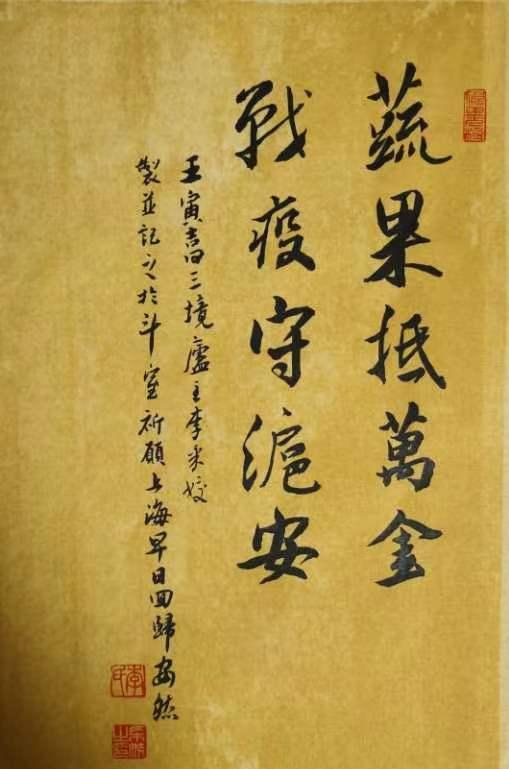 蔬果抵萬金
戰疫守滬安
壬寅吉日三境廬主李米姣
製並記之於斗室祈願上海早日回歸安然
李氏